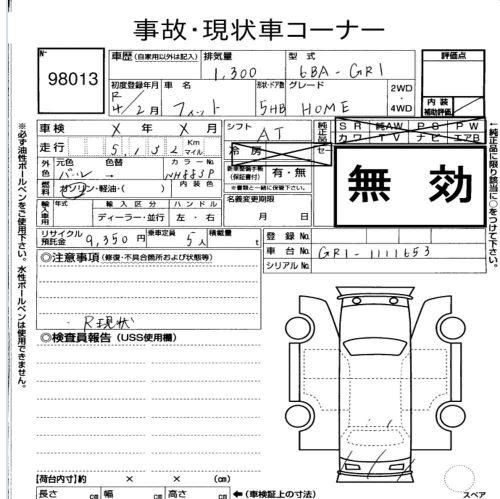 事故・現状車コーナー
No.
98013
車歴 (自家用以外は記入)
排気量
1,300
型式
6BA-GR1
評価点
初度登録年月
R4/2月
車名
フィット
形状・ドア数
5HB
グレード
HOME
2WD
・
4WD
内装
補助評価
車検 X年 X月
シフト
AT
純正品装備
SR 純AW PS PW
カワ TV ナビ エアB
走行 5,132 Km マイル
冷房
外色 元色 色替
パール→
カラーNo.
NH883P
新車整備手帳
(保証書付)
有・無
※書類と一緒に保管下さい。
燃料
ガソリン・軽油・( )
内装色
無効
輸入車用
年式
輸入区分
ディーラー・並行
ハンドル
左・右
名義変更期限
月 日
リサイクル預託金
9,350円
乗車定員
5人
積載量
t
登録No.
車台No.
GR1-1111653
シリアルNo.
◎注意事項 (修復・不具合箇所および状態等)
R現状
◎検査員報告 (USS使用欄)
【荷台内寸】約 × × (cm)
長さ cm 幅 cm 高さ cm ←(車検証上の寸法)
スペア
※必ず油性ボールペンをご使用下さい。水性ボールペンは使用できません。
←純正品に限り該当に○をつけて下さい。